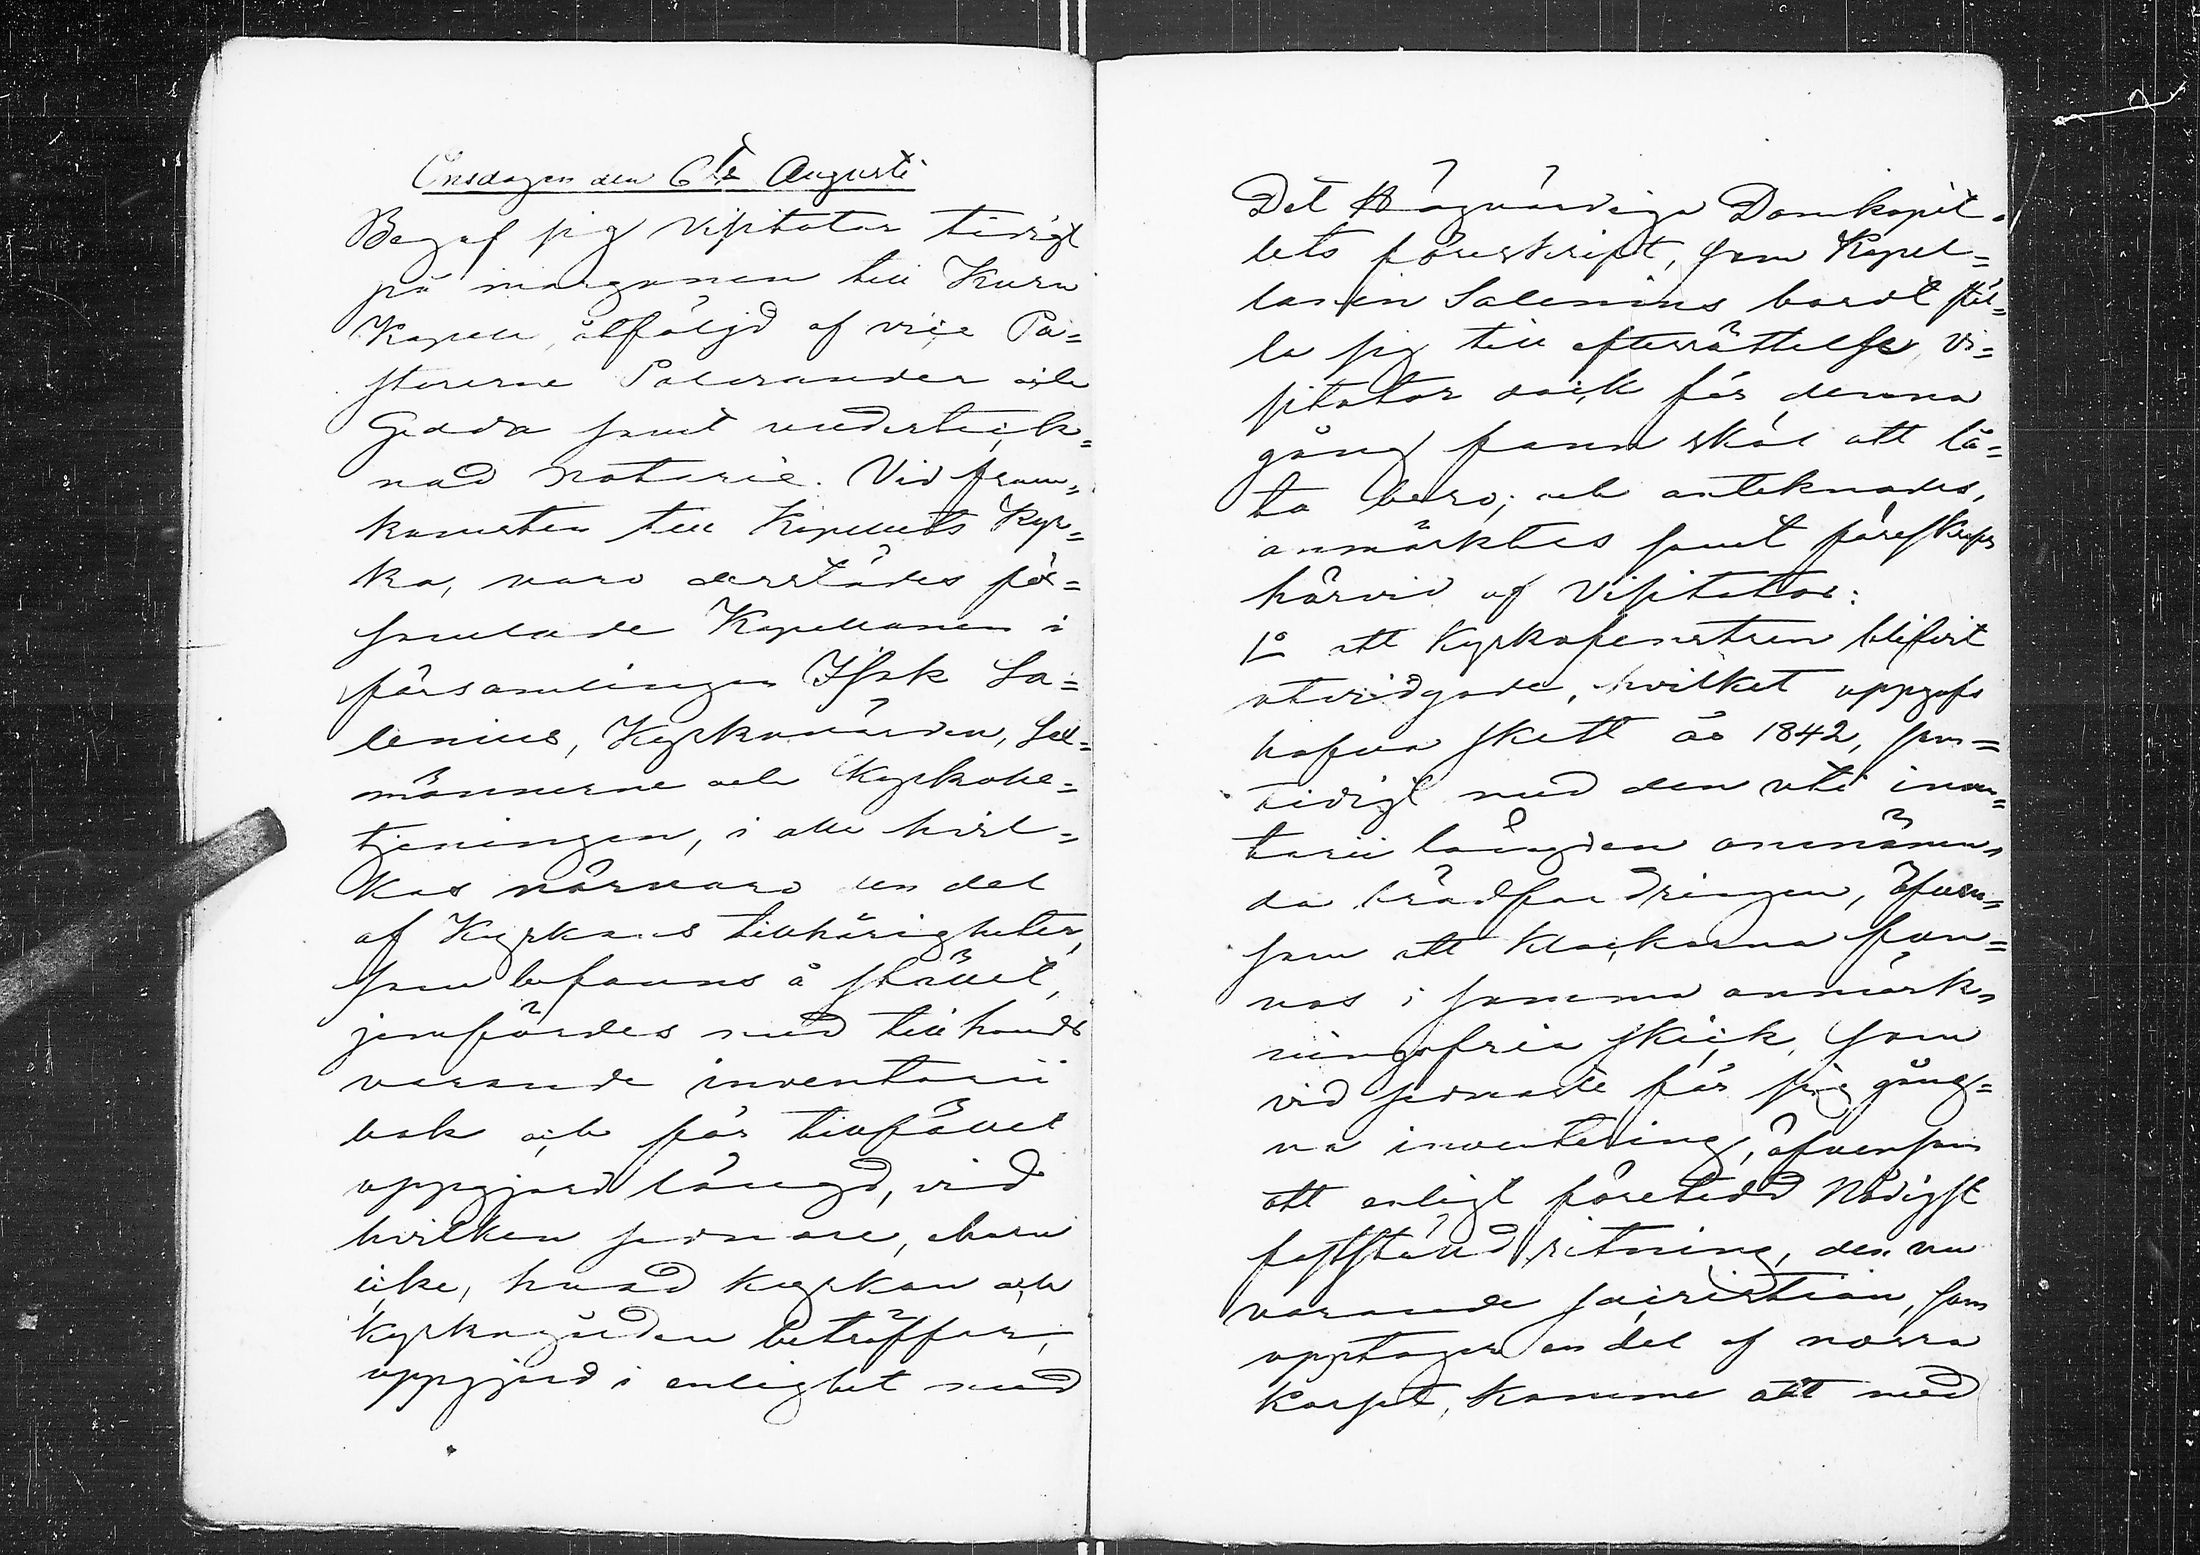 Onsdagen den 6te Augusti
Begaf sig Visitator tidigt
på morgonen till Kuru
Kapell, åtföljd af vice Pa=
storerne Polviander och
Gadda samt underteck=
nad Notarie. Vid fram=
komsten till Kapellets Kyr=
ka, voro derstädes för=
samlade Kapellanen i
församlingen Isak Sa=
lenius, Kyrkovärden, Sex=
männerne och Kyrkobe=
tjeningen, i alla hvil=
kas närvaro en del
af Kyrkans tillhörigheter,
som befanns å stället,
jemfördes med tillhands
varande inventarii
bok och för tillfället
uppgjord längd, vid
hvilken sednare, ehuru
icke, hvad kyrkan och
kyrkogården beträffar,
uppgjord i enlighet med
Det Högvördiga Domkapit=
lets föreskrift, som Kapel=
lanen Salenius bordt stäl=
la sig till efterrättelse, Vi=
sitator dock för denna
gång fann skäl att lå=
ta bero; och antecknades,
anmärktes samt föreskrefs
härvid af Visitator:
1o att Kyrkofenstren blifvit
utvidgade, hvilket uppgafs
hafva skett år 1842, sam=
tidigt med den uti inven=
tarii längden omnämn=
da brädfodringen, äfven=
som att Klockorna fun=
nos i samma anmärk=
ningsfria skick, som
vid sednaste för sig gång=
na inventering, äfvensom
att enligt företedd Nådigst
fastställd ritning, den nu
varande sacristian, som
upptager en del af norra
korset, komme att med